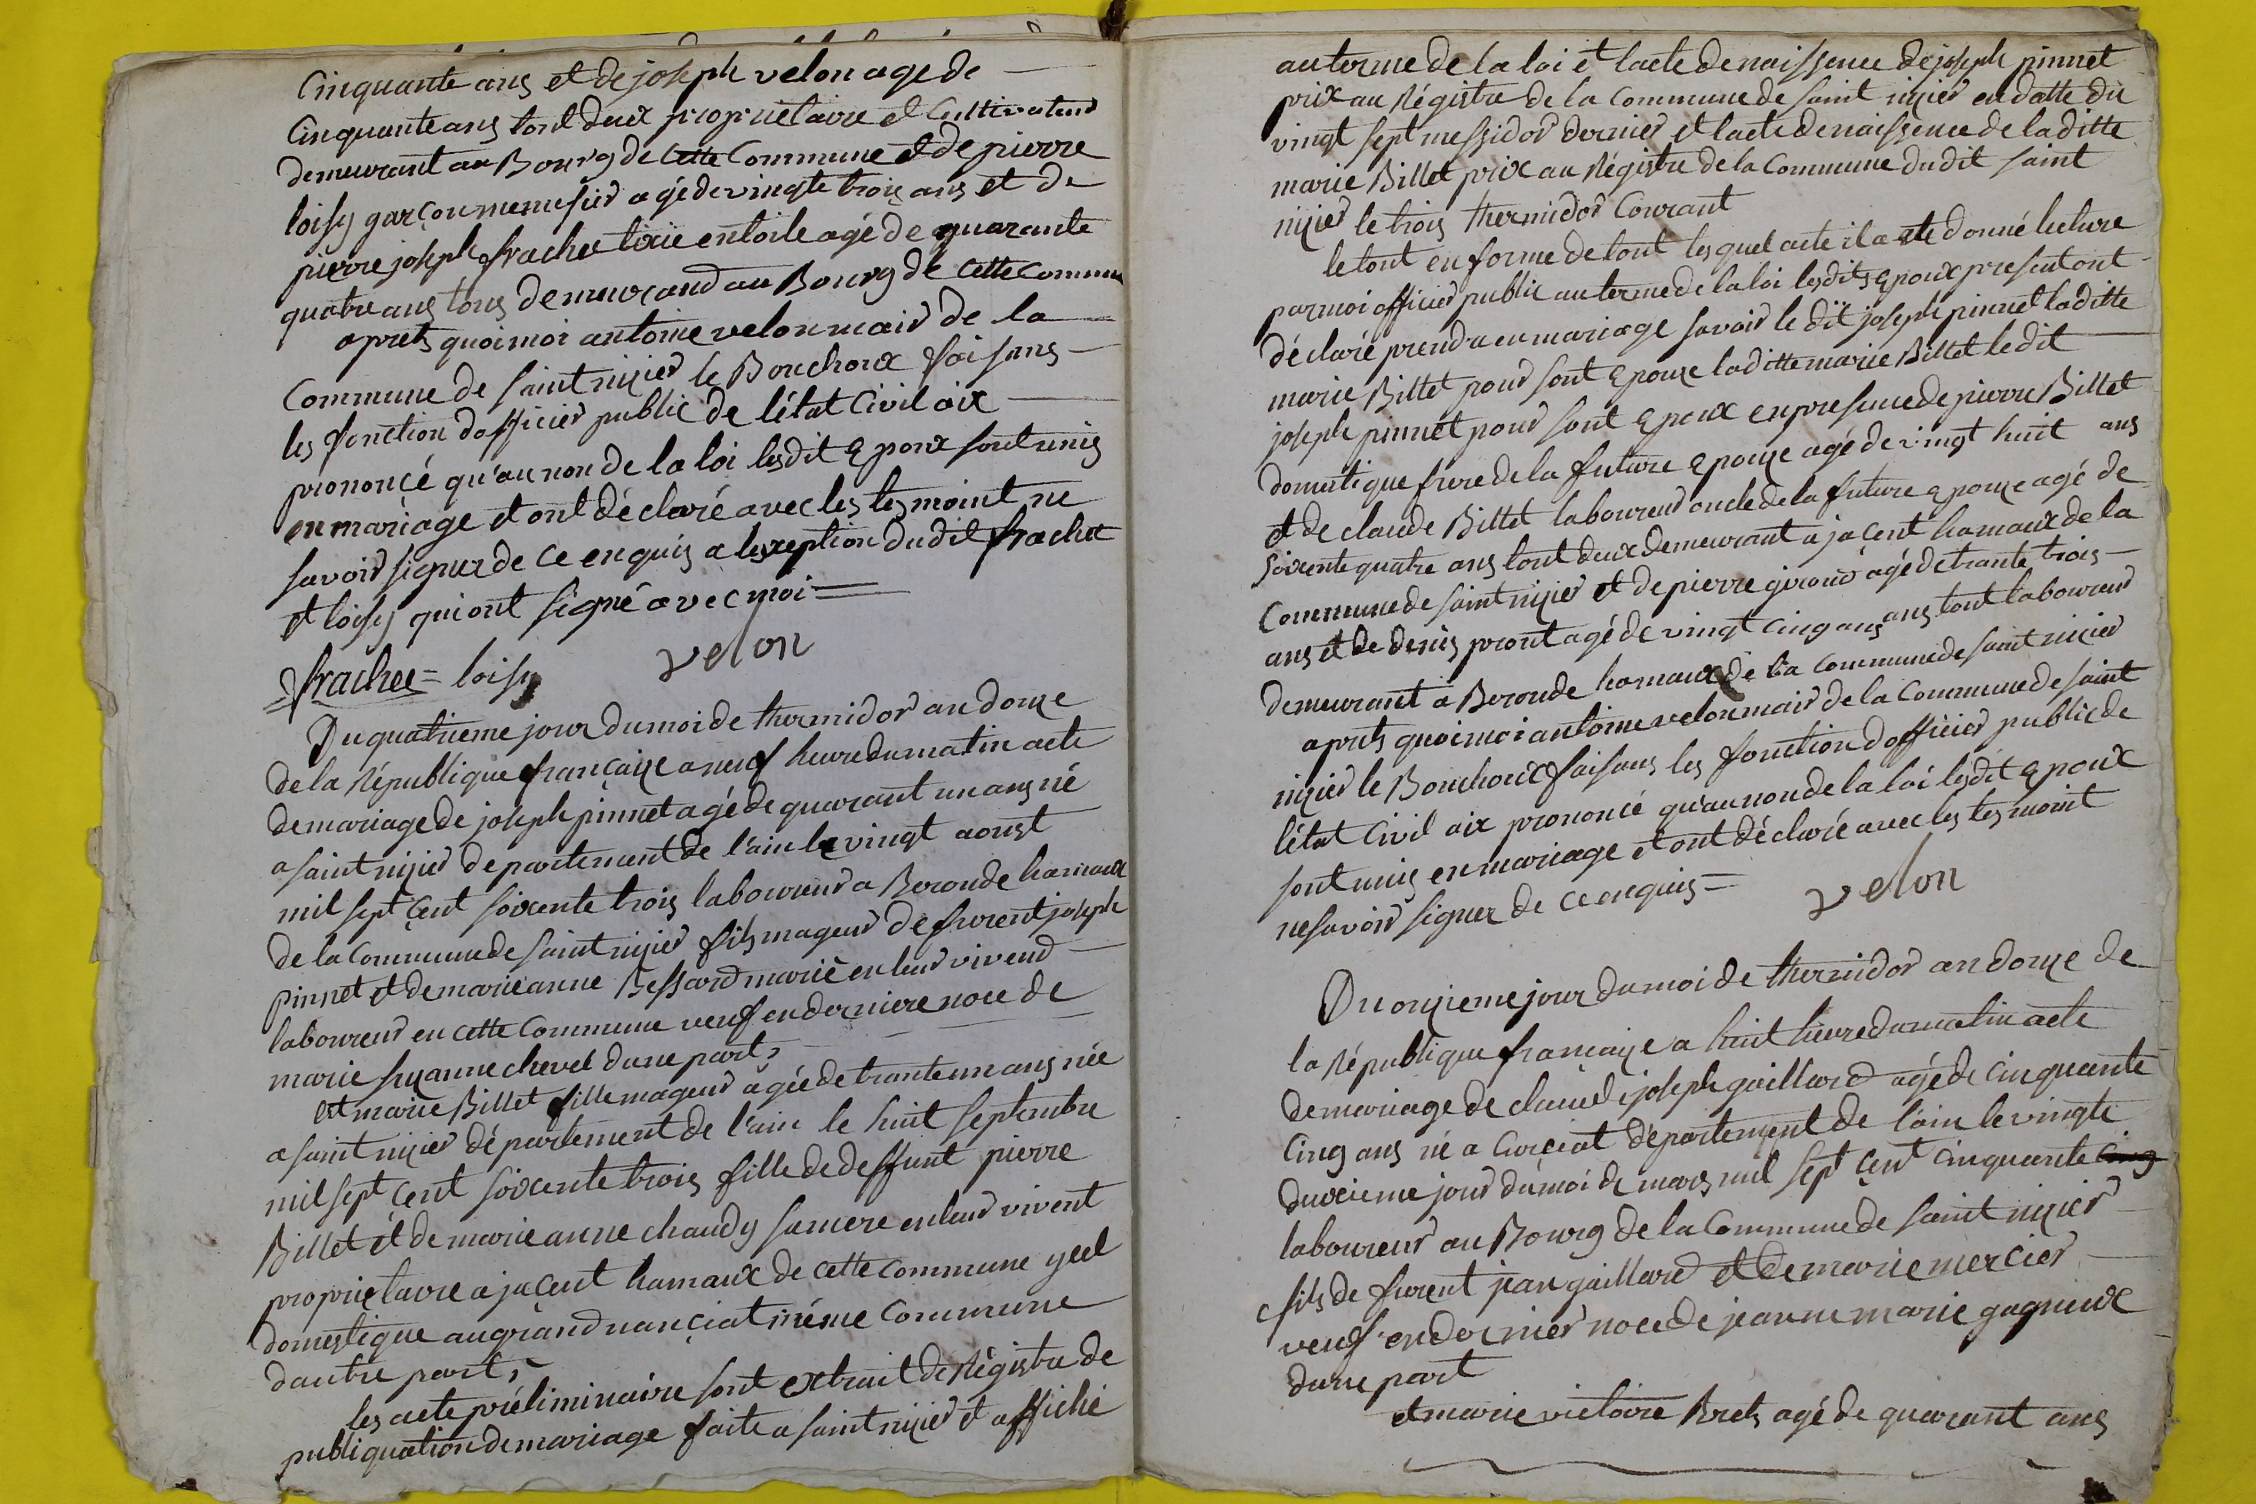 Cinquante ans et de joseph velon age de
Cinquante ans tout deux propriétaire et Cultivateur
demeurant au Bourg de cette Commune et de pierre
loisy garçon menusier agé de vingte trois ans et de
pierre joseph frachet tixie en toile agé de quarante
quatre ans tous demeurand au Bourg de cette commune
aprets quoi moi antoine velon mair de la
Commune de saint nizier le Bouchoux faisans
les fonction dofficier public de létat Civil aix
prononcé qu'au non de la loi lesdit epoux sont unis
en mariage et ont déclaré avec les tesmoint ne
savoir signer de ce enquis a lesxeption dudit frachet
et loisy qui ont signé avec moi
frachet = loisy velon
Du quatrieme jour du moi de thermidor an douze
de la République françaize a neuf heure du matin acte
de mariage de joseph pinnet agé de quarant un ans né
a saint nizier departement de l'ain le vingt aoust
mil sept cent soixente trois laboureur a Beronde hamaux
de la Commune de saint nizier fils mageur de furent joseph
pinnet et de marie anne Bessard marié en leur vivend
laboureur en cette Commune veuf en derniere noce de
marie suzanne chevet dune part,
et marie Billet fille mageur agée de trante un ans née
a saint nizier département de l'ain le huit septembre
mil sept cent soixente trois fille de deffunt pierre
Billet et de marie anne chaudy sa mere en leur vivent
propriétaire a jacent hamaux de cette commune yeel
domestique au grand nanciat méme Commune
dautre part,
les acte préliminaire sont extrait de Régistre de
publiquation de mariage faite a saint nizier et affiché
au terme de la loi et lacte de naissence de joseph pinnet
prix au Régistre de la Commune de saint nizier en datte du
vingt sept messidor dernier et lacte de naissence de laditte
marie Billet prix au Régistre de la Commune dudit saint
nizier le trois thermidor Courant
le tout en forme de tout lesquel acte il a ete donné lecture
par moi officier public au terme de la loi lesdits epoux present ont
déclaré prendre en mariage savoir le dit joseph pinnet laditte
marie Billet pour sont epouze laditte marie Billet ledit
joseph pinnet pour sont epoux en presence de pierre Billet
domestique frere de la future epouze agé de vingt huit ans
et de claude Billet laboureur oncle de la future epouze agé de
soixente quatre ans tout deux demeurant a jacent hamaux de la
Commune de saint nizier et de pierre giroud agé de trante trois
ans et de denis pront agé de vingt cinq ans ans tout laboureur
demeurant a Beronde hamaux de la Commune de saint nizier
aprets quoi moi antoine velon mair de la Commune de saint
nizier le Bouchoux faisans les fonction dofficier public de
létat Civil aix prononcé qu'au non de la loi lesdit epoux
sont unis en mariage et ont déclaré avec les tesmoint
ne savoir signer de ce enquis = velon
Du onzieme jour du moi de thermidor an douze de
la République françaize a huit heure du matin acte
de mariage de claude joseph gaillard agé de cinquante
cinq ans né a Curciat département de l'ain le vingte
duxieme jour du moi de mars mil sept cent cinquante cinq
laboureur au Bourg de la Commune de saint nizier
fils de furent jean gaillard et de marie mercier
veuf en dernier noce de jeanne marie gagneux
dune part
et marie victoire Brets agé de quarant ans